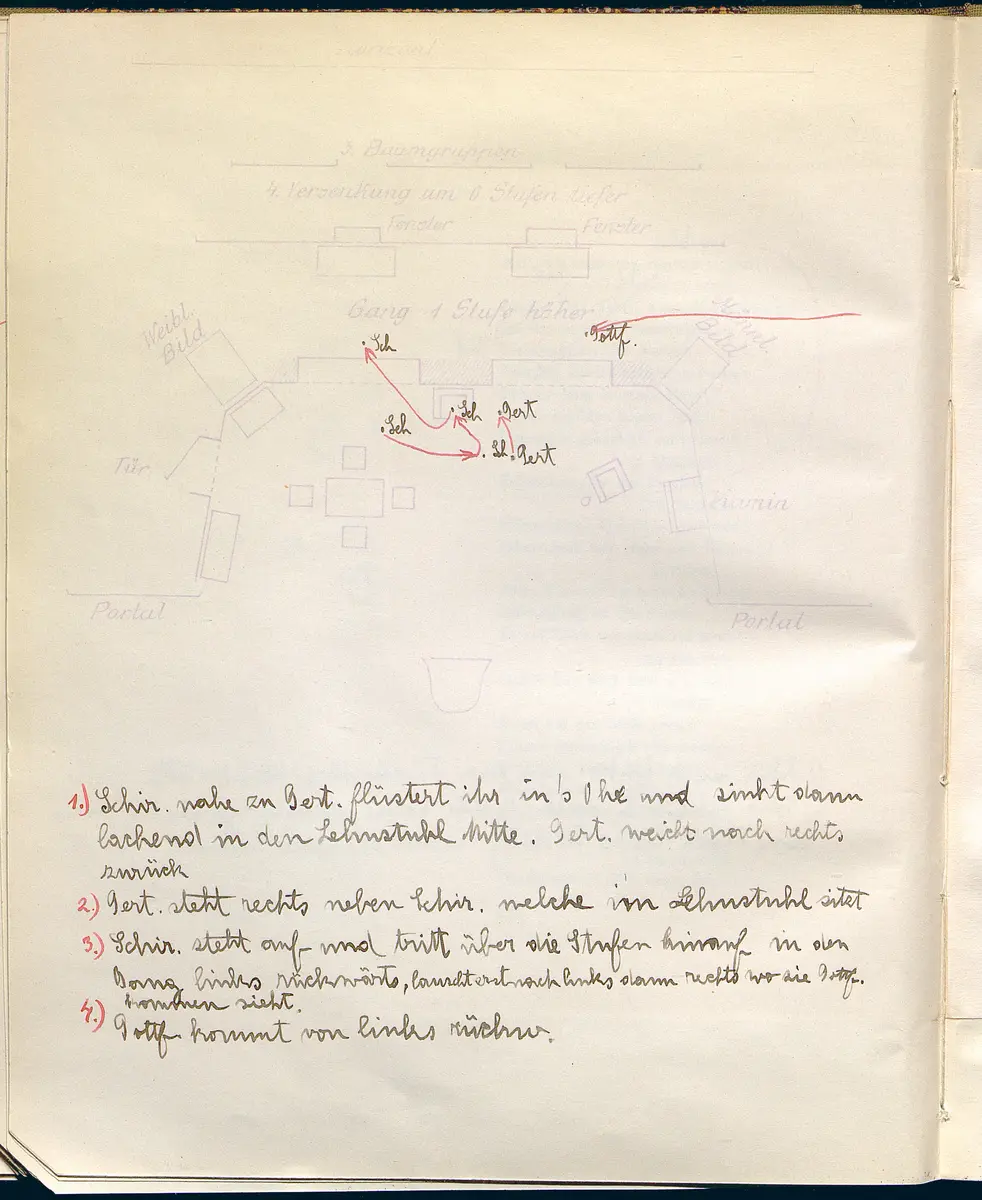 3. Baumgruppen
4. Versenkung um 6 Stufen tiefer
Fenster
Fenster
Gang 1 Stufe höher
Weibl.
Bild
Bild
Gottf.
Sch
Sch
Gert
Sch
Sch
Gert
Tür
Kamin
Portal
Portal
1.) Schir. nahe zu Gert. flüstert ihr in's Ohr und sinkt dann
lachend in den Lehnstuhl Mitte. Gert. weicht nach rechts
zurück
2.) Gert. steht rechts neben Schir. welche im Lehnstuhl sitzt
3.) Schir. steht auf und tritt über die Stufen hinauf in den
Gang links rückwärts, lauscht erst nach links dann rechts wo sie Gottf.
kommen sieht.
4.) Gottf. kommt von links rückw.